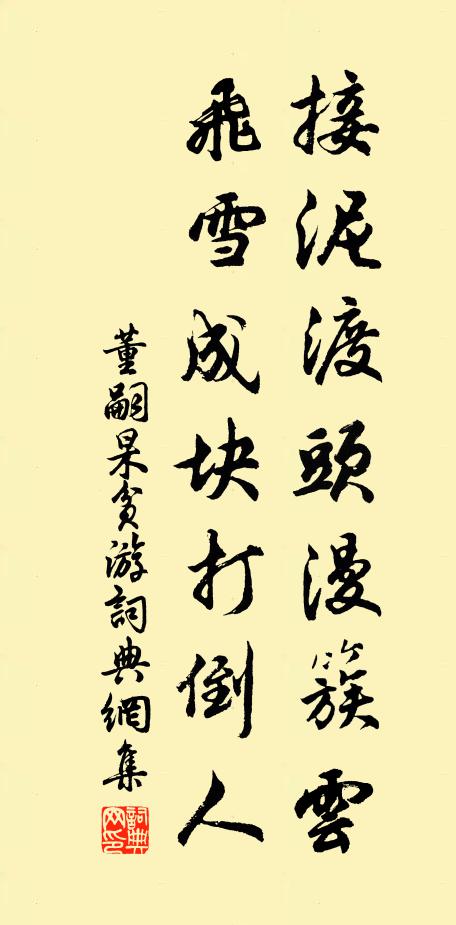 接泥渡頭漫簇雲
飛雪成块打倒人
董嗣杲贫游詞典網集
詞典网印